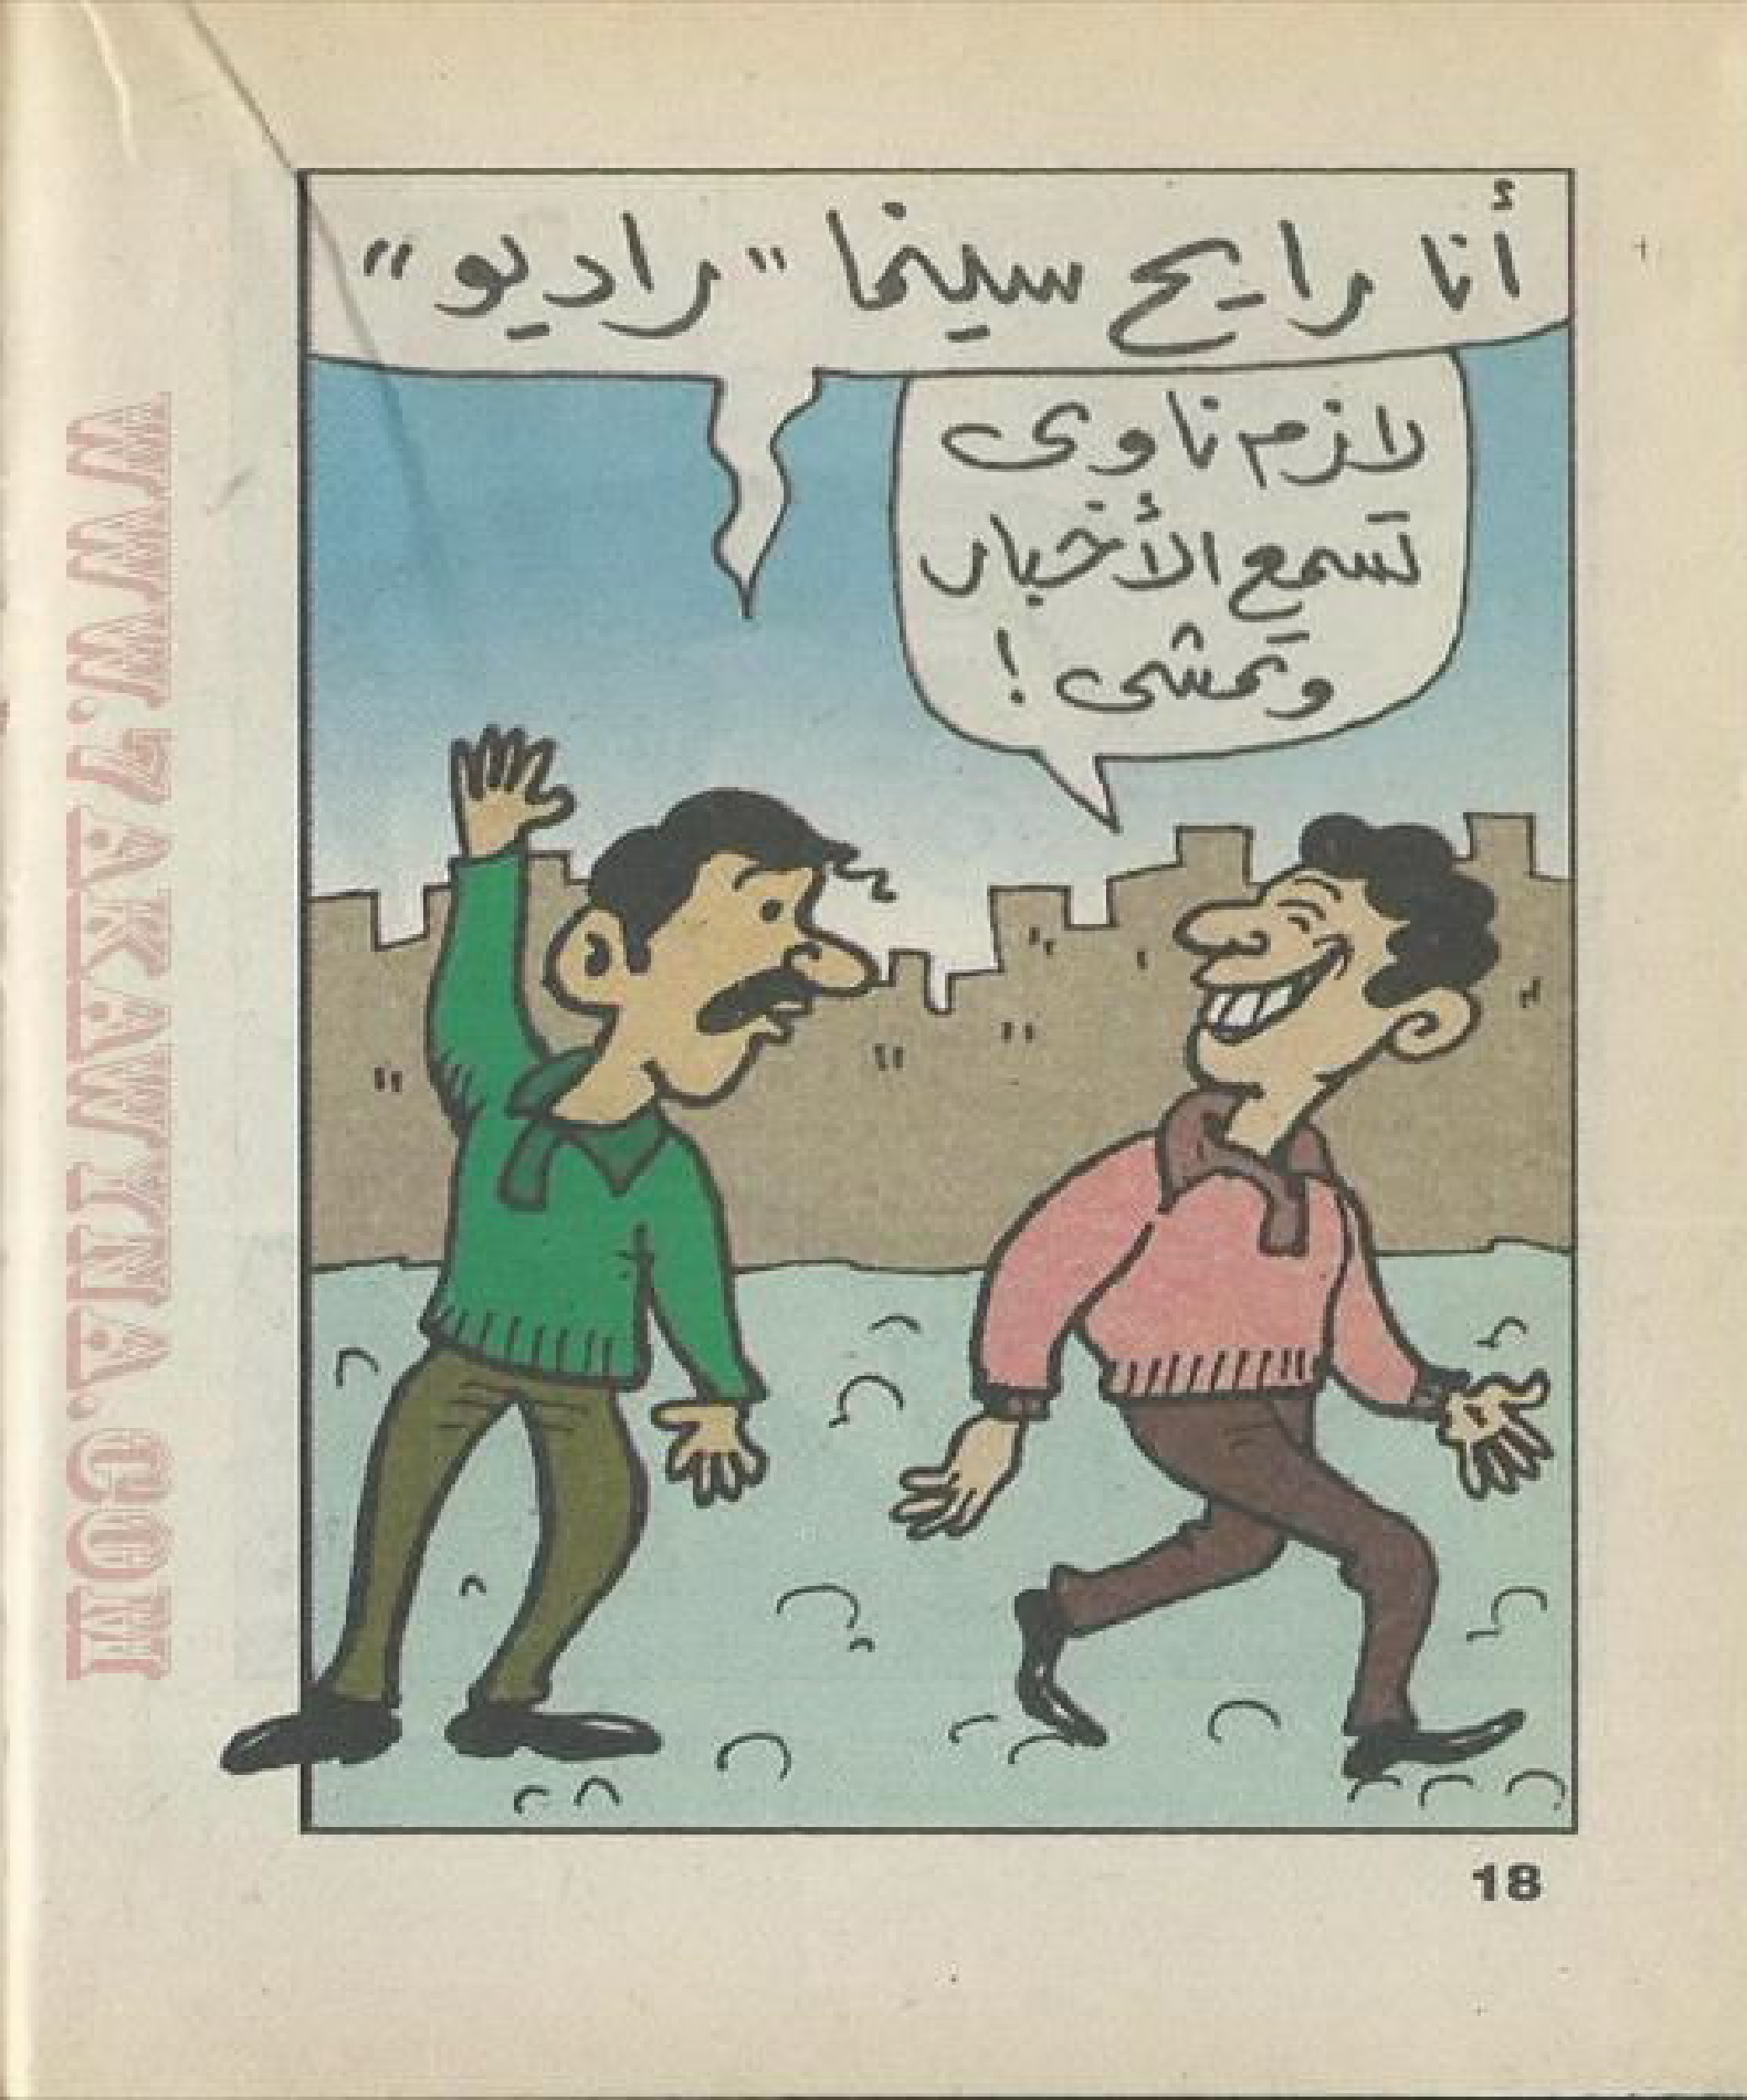 أنا رايح سينما "راديو"
لازم ناوى
تسمع الأخبار
وتمشى !
WWW.7AKAWYINA.COM
18